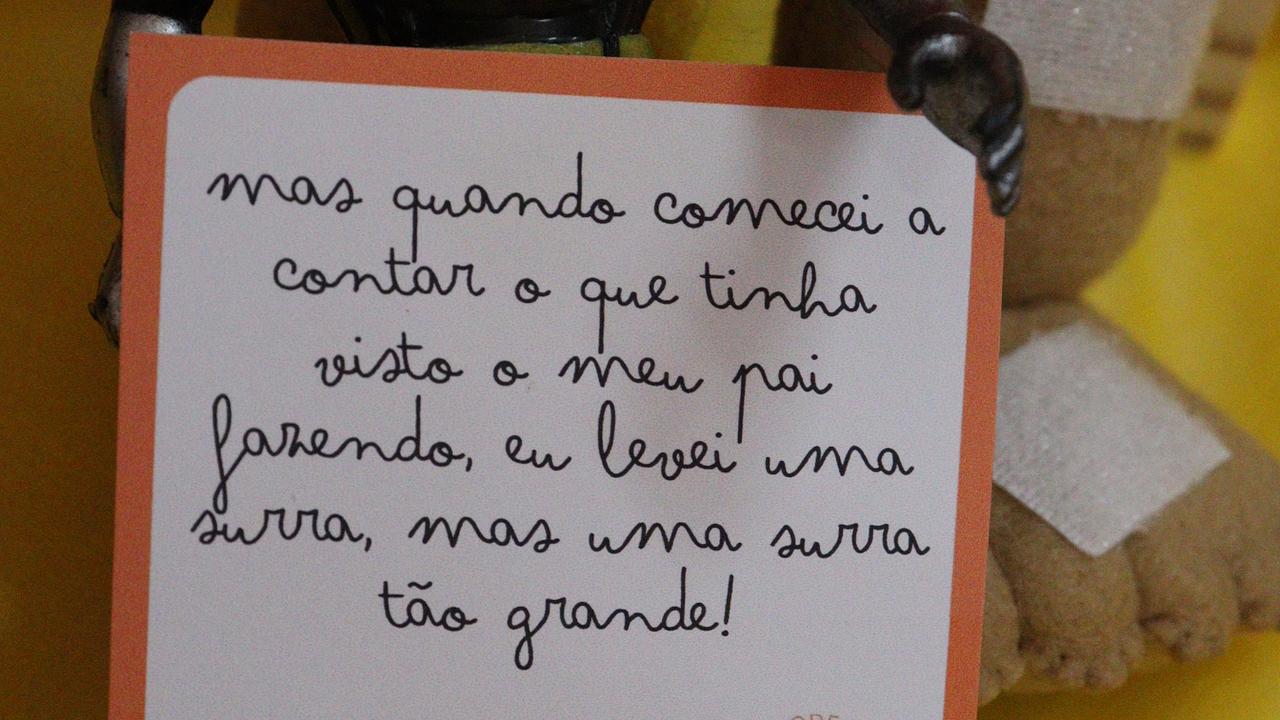 mas quando comecei a
contar o que tinha
visto o meu pai
fazendo, eu levei uma
surra, mas uma surra
tão grande!